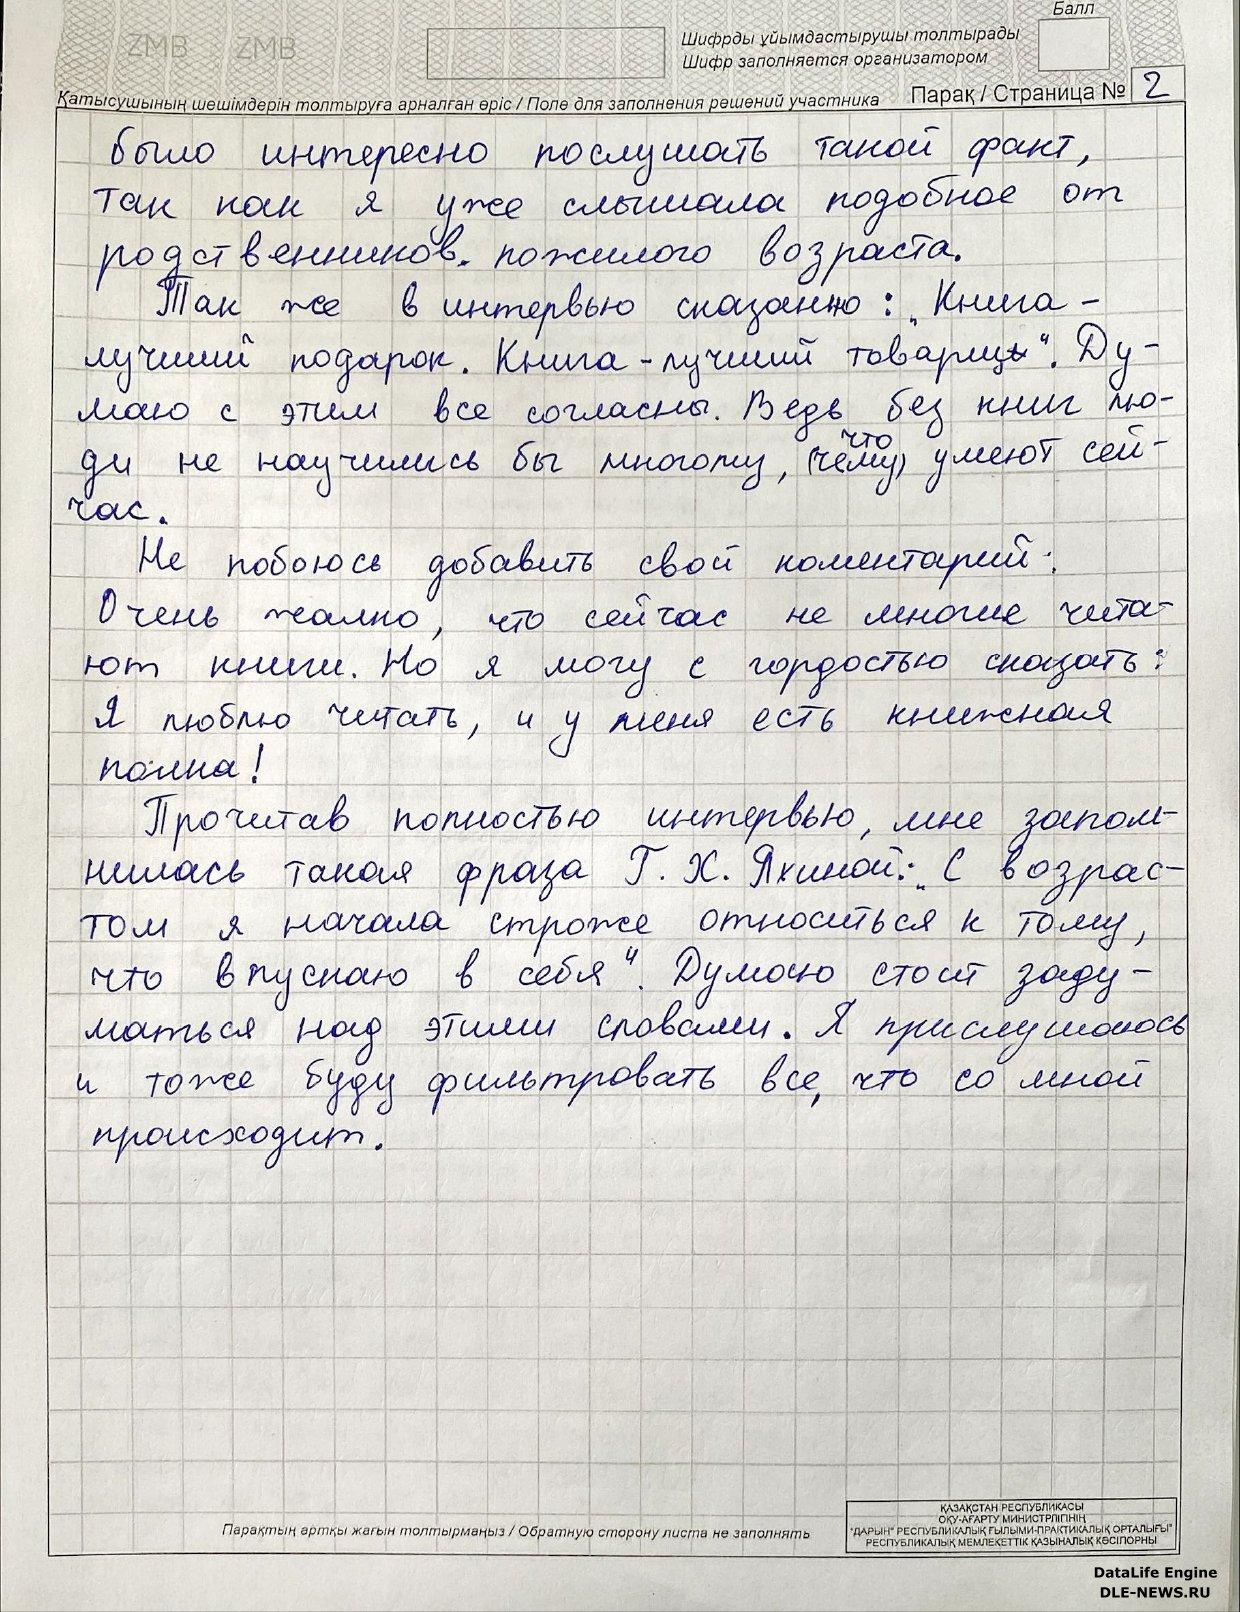 ZMB ZMB
Балл
Шифрды ұйымдастырушы толтырады
Шифр заполняется организатором
Қатысушының шешімдерін толтыруға арналған өріс / Поле для заполнения решений участника Парақ / Страница № 2
было интересно послушать такой факт,
так как я уже слышала подобное от
родственников. пожилого возраста.
Так же в интервью сказанно: „Книга -
лучший подарок. Книга - лучший товарищ“. Ду-
маю с этим все согласны. Ведь без книг лю-
ди не научились бы многому, (чему) что умеют сей-
час.
Не побоюсь добавить свой коментарий:
Очень жалко, что сейчас не многие чита-
ют книги. Но я могу с гордостью сказать:
Я люблю читать, и у меня есть книжная
полка!
Прочитав полностью интервью, мне запом-
нилась такая фраза Г. Х. Яхиной: „С возрас-
том я начала строже относиться к тому,
что впускаю в себя“. Думаю стоит заду-
маться над этими словами. Я прислушаюсь
и тоже буду фильтровать все, что со мной
происходит.
Парақтың артқы жағын толтырмаңыз / Обратную сторону листа не заполнять
ҚАЗАҚСТАН РЕСПУБЛИКАСЫ
ОҚУ-АҒАРТУ МИНИСТРЛІГІНІҢ
"ДАРЫН" РЕСПУБЛИКАЛЫҚ ҒЫЛЫМИ-ПРАКТИКАЛЫҚ ОРТАЛЫҒЫ"
РЕСПУБЛИКАЛЫҚ МЕМЛЕКЕТТІК ҚАЗЫНАЛЫҚ КӘСІПОРНЫ
DataLife Engine
DLE-NEWS.RU